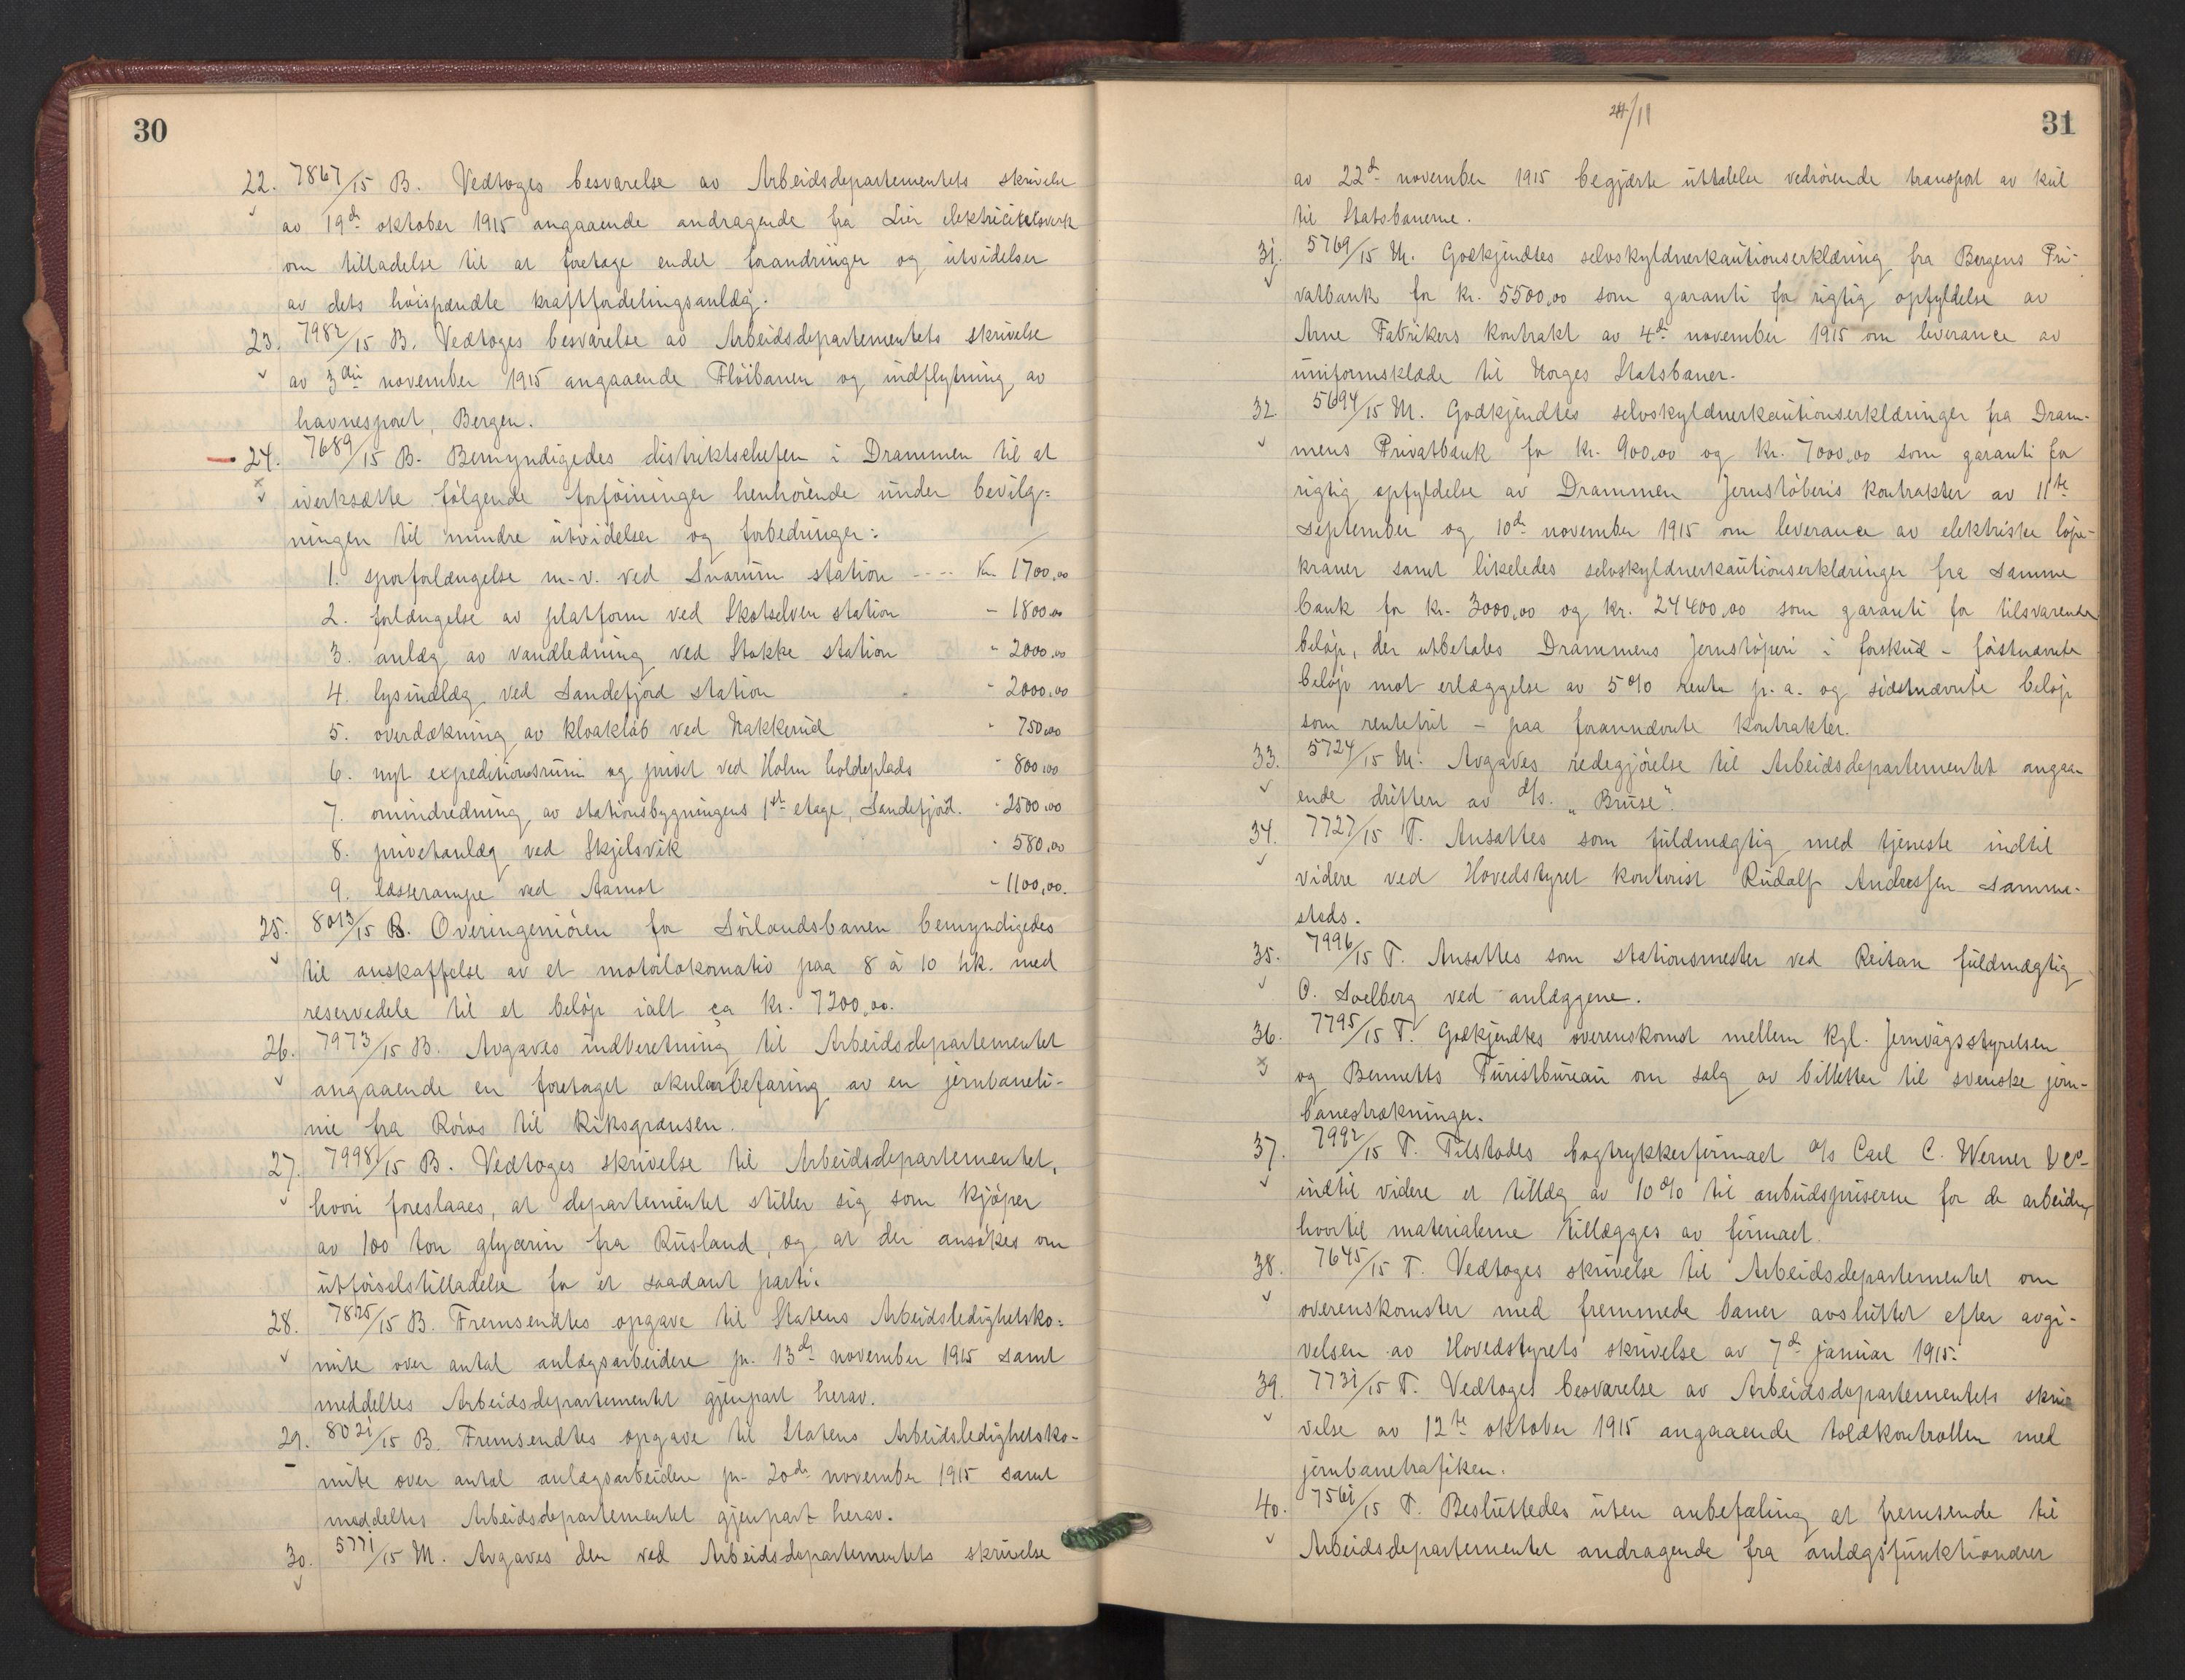 30
22. 7867/15 B. Vedtoges besvarelse av Arbeidsdepartementets skrivelse
av 19de oktober 1915 angaaende andragende fra Lier elektricitetsverk
om tilladelse til at foretage endel forandringer og utvidelser
av dets høispændte kraftfordelingsanlæg.
23. 7982/15 B. Vedtoges besvarelse av Arbeidsdepartementets skrivelse
av 3die november 1915 angaaende Fløibanen og indflytning av
havnesporet, Bergen.
24. 7689/15 B. Bemyndigedes distriktschefen i Drammen til at
iverksætte følgende forføininger henhørende under bevilg=
ningen til mindre utvidelser og forbedringer:
1. sporforlængelse m.v. ved Snarum station ---- Kr. 1700,00
2. forlængelse av platform ved Skotselven station - 1800,00
3. anlæg av vandledning ved Stokke station - 2000,00
4. lysindlæg ved Sandefjord station - 2000,00
5. overdækning av kloakløb ved Nakkerud - 750,00
6. nyt expeditionsrum og privet ved Holm holdeplads - 800,00
7. omindredning av stationsbygningens 1ste etage, Sandefjord. - 2500,00
8. privetanlæg ved Skjelsvik - 580,00
9. læsserampe ved Aamot - 1100,00.
25. 8013/15 B. Overingeniøren for Sørlandsbanen bemyndigedes
til anskaffelse av et motorlokomotiv paa 8 à 10 hk. med
reservedele til et beløp ialt ca kr. 7200,00.
26. 7973/15 B. Avgaves indberetning til Arbeidsdepartementet
angaaende en foretaget okularbefaring av en jernbaneli-
nie fra Røros til Riksgrænsen.
27. 7998/15 B. Vedtoges skrivelse til Arbeidsdepartementet,
hvori foreslaaes, at departementet stiller sig som kjøper
av 100 ton glycerin fra Rusland, og at der ansøkes om
utførselstilladelse for et saadant parti.
28. 7825/15 B. Fremsendtes opgave til Statens Arbeidsledighetsko=
mite over antal anlægsarbeidere pr. 13de november 1915 samt
meddeltes Arbeidsdepartementet gjenpart herav.
29. 8021/15 B. Fremsendtes opgave til Statens Arbeidsledighetsko-
mite over antal anlægsarbeidere pr. 20de november 1915 samt
meddeltes Arbeidsdepartementet gjenpart herav.
30. 5771/15 M. Avgaves den ved Arbeidsdepartementets skrivelse
24/11
31
av 22de november 1915 begjærte uttalelse vedrørende transport av kul
til Statsbanerne.
31. 5769/15 M. Godkjendtes selvskyldnerkautionserklæring fra Bergens Pri-
vatbank for kr. 5500,00 som garanti for rigtig opfyldelse av
Arne Fabrikers kontrakt av 4de november 1915 om leverance av
uniformsklæde til Norges Statsbaner.
32. 5694/15 M. Godkjendtes selvskyldnerkautionserklæringer fra Dram-
mens Privatbank for kr. 900,00 og kr. 7000,00 som garanti for
rigtig opfyldelse av Drammen Jernstøberis kontrakter av 11te
september og 10de november 1915 om leverance av elektriske løpe-
kraner samt likeledes selvskyldnerkautionserklæringer fra samme
bank for kr. 3000,00 og kr. 24400,00 som garanti for tilsvarende
beløp, der utbetales Drammens Jernstøperi i forskud - førstnævnte
beløp mot erlæggelse av 5% rente p.a. og sidstnævnte beløp
som rentefrit - paa forannævnte kontrakter.
33. 5724/15 M. Avgaves redegjørelse til Arbeidsdepartementet angaa-
ende driften av d/s. "Bruse".
34. 7727/15 T. Ansattes som fuldmægtig med tjeneste indtil
videre ved Hovedstyret kontorist Rudolf Andressen samme-
steds.
35. 7996/15 T. Ansattes som stationsmester ved Reitan fuldmægtig
O. Solberg ved anlæggene.
36. 7795/15 T. Godkjendtes overenskomst mellem Kgl. Jernvägsstyrelsen
og Bennetts Turistbureau om salg av billetter til svenske jern-
banestrækninger.
37. 7992/15 T. Tilstodes bogtrykkerfirmaet a/s Carl C. Werner & Co
indtil videre et tillæg av 10% til anbudspriserne for de arbeider,
hvortil materialerne tillægges av firmaet.
38. 7645/15 T. Vedtoges skrivelse til Arbeidsdepartementet om
overenskomster med fremmede baner avsluttet efter avgi-
velsen av Hovedstyrets skrivelse av 7de januar 1915.
39. 7731/15 T. Vedtoges besvarelse av Arbeidsdepartementets skri-
velse av 12te oktober 1915 angaaende toldkontrollen med
jernbanetrafiken.
40. 7561/15 T. Besluttedes uten anbefaling at fremsende til
Arbeidsdepartementet andragende fra anlægsfunktionærer